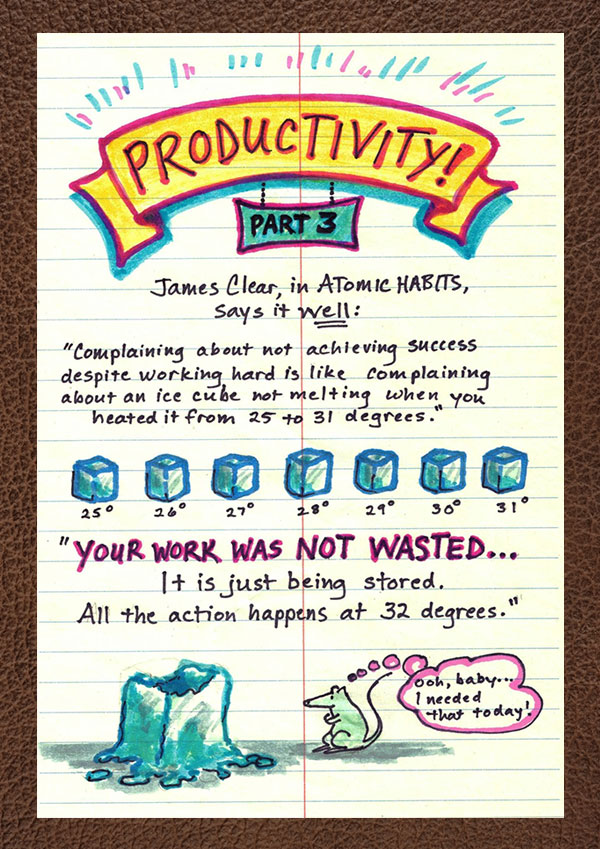 PRODUCTIVITY!
PART 3
James Clear, in ATOMIC HABITS,
says it well:
"Complaining about not achieving success
despite working hard is like complaining
about an ice cube not melting when you
heated it from 25 to 31 degrees."
25° 26° 27° 28° 29° 30° 31°
"YOUR WORK WAS NOT WASTED...
It is just being stored.
All the action happens at 32 degrees."
Ooh, baby...
I needed
that today!